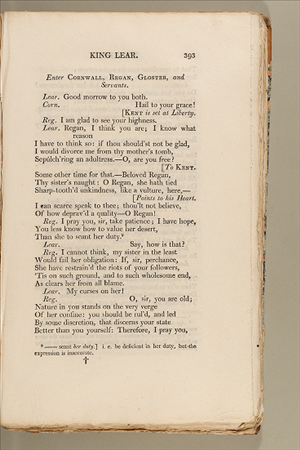 KING LEAR. 393
Enter CORNWALL, REGAN, GLOSTER, and
Servants.
Lear. Good morrow to you both.
Corn. Hail to your grace!
[KENT is set at Liberty.
Reg. I am glad to see your highness.
Lear. Regan, I think you are; I know what
reason
I have to think so: if thou should'st not be glad,
I would divorce me from thy mother's tomb,
Sepúlch'ring an adultress.—O, are you free?
[To KENT.
Some other time for that.—Beloved Regan,
Thy sister's naught: O Regan, she hath tied
Sharp-tooth'd unkindness, like a vulture, here,—
[Points to his Heart.
I can scarce speak to thee; thou'lt not believe,
Of how deprav'd a quality—O Regan!
Reg. I pray you, sir, take patience; I have hope,
You less know how to value her desert,
Than she to scant her duty.*
Lear. Say, how is that?
Reg. I cannot think, my sister in the least
Would fail her obligation: If, sir, perchance,
She have restrain'd the riots of your followers,
'Tis on such ground, and to such wholesome end,
As clears her from all blame.
Lear. My curses on her!
Reg. O, sir, you are old;
Nature in you stands on the very verge
Of her confine: you should be rul'd, and led
By some discretion, that discerns your state
Better than you yourself: Therefore, I pray you,
* —— scant her duty.] i. e. be deficient in her duty, but the
expression is inaccurate.
†